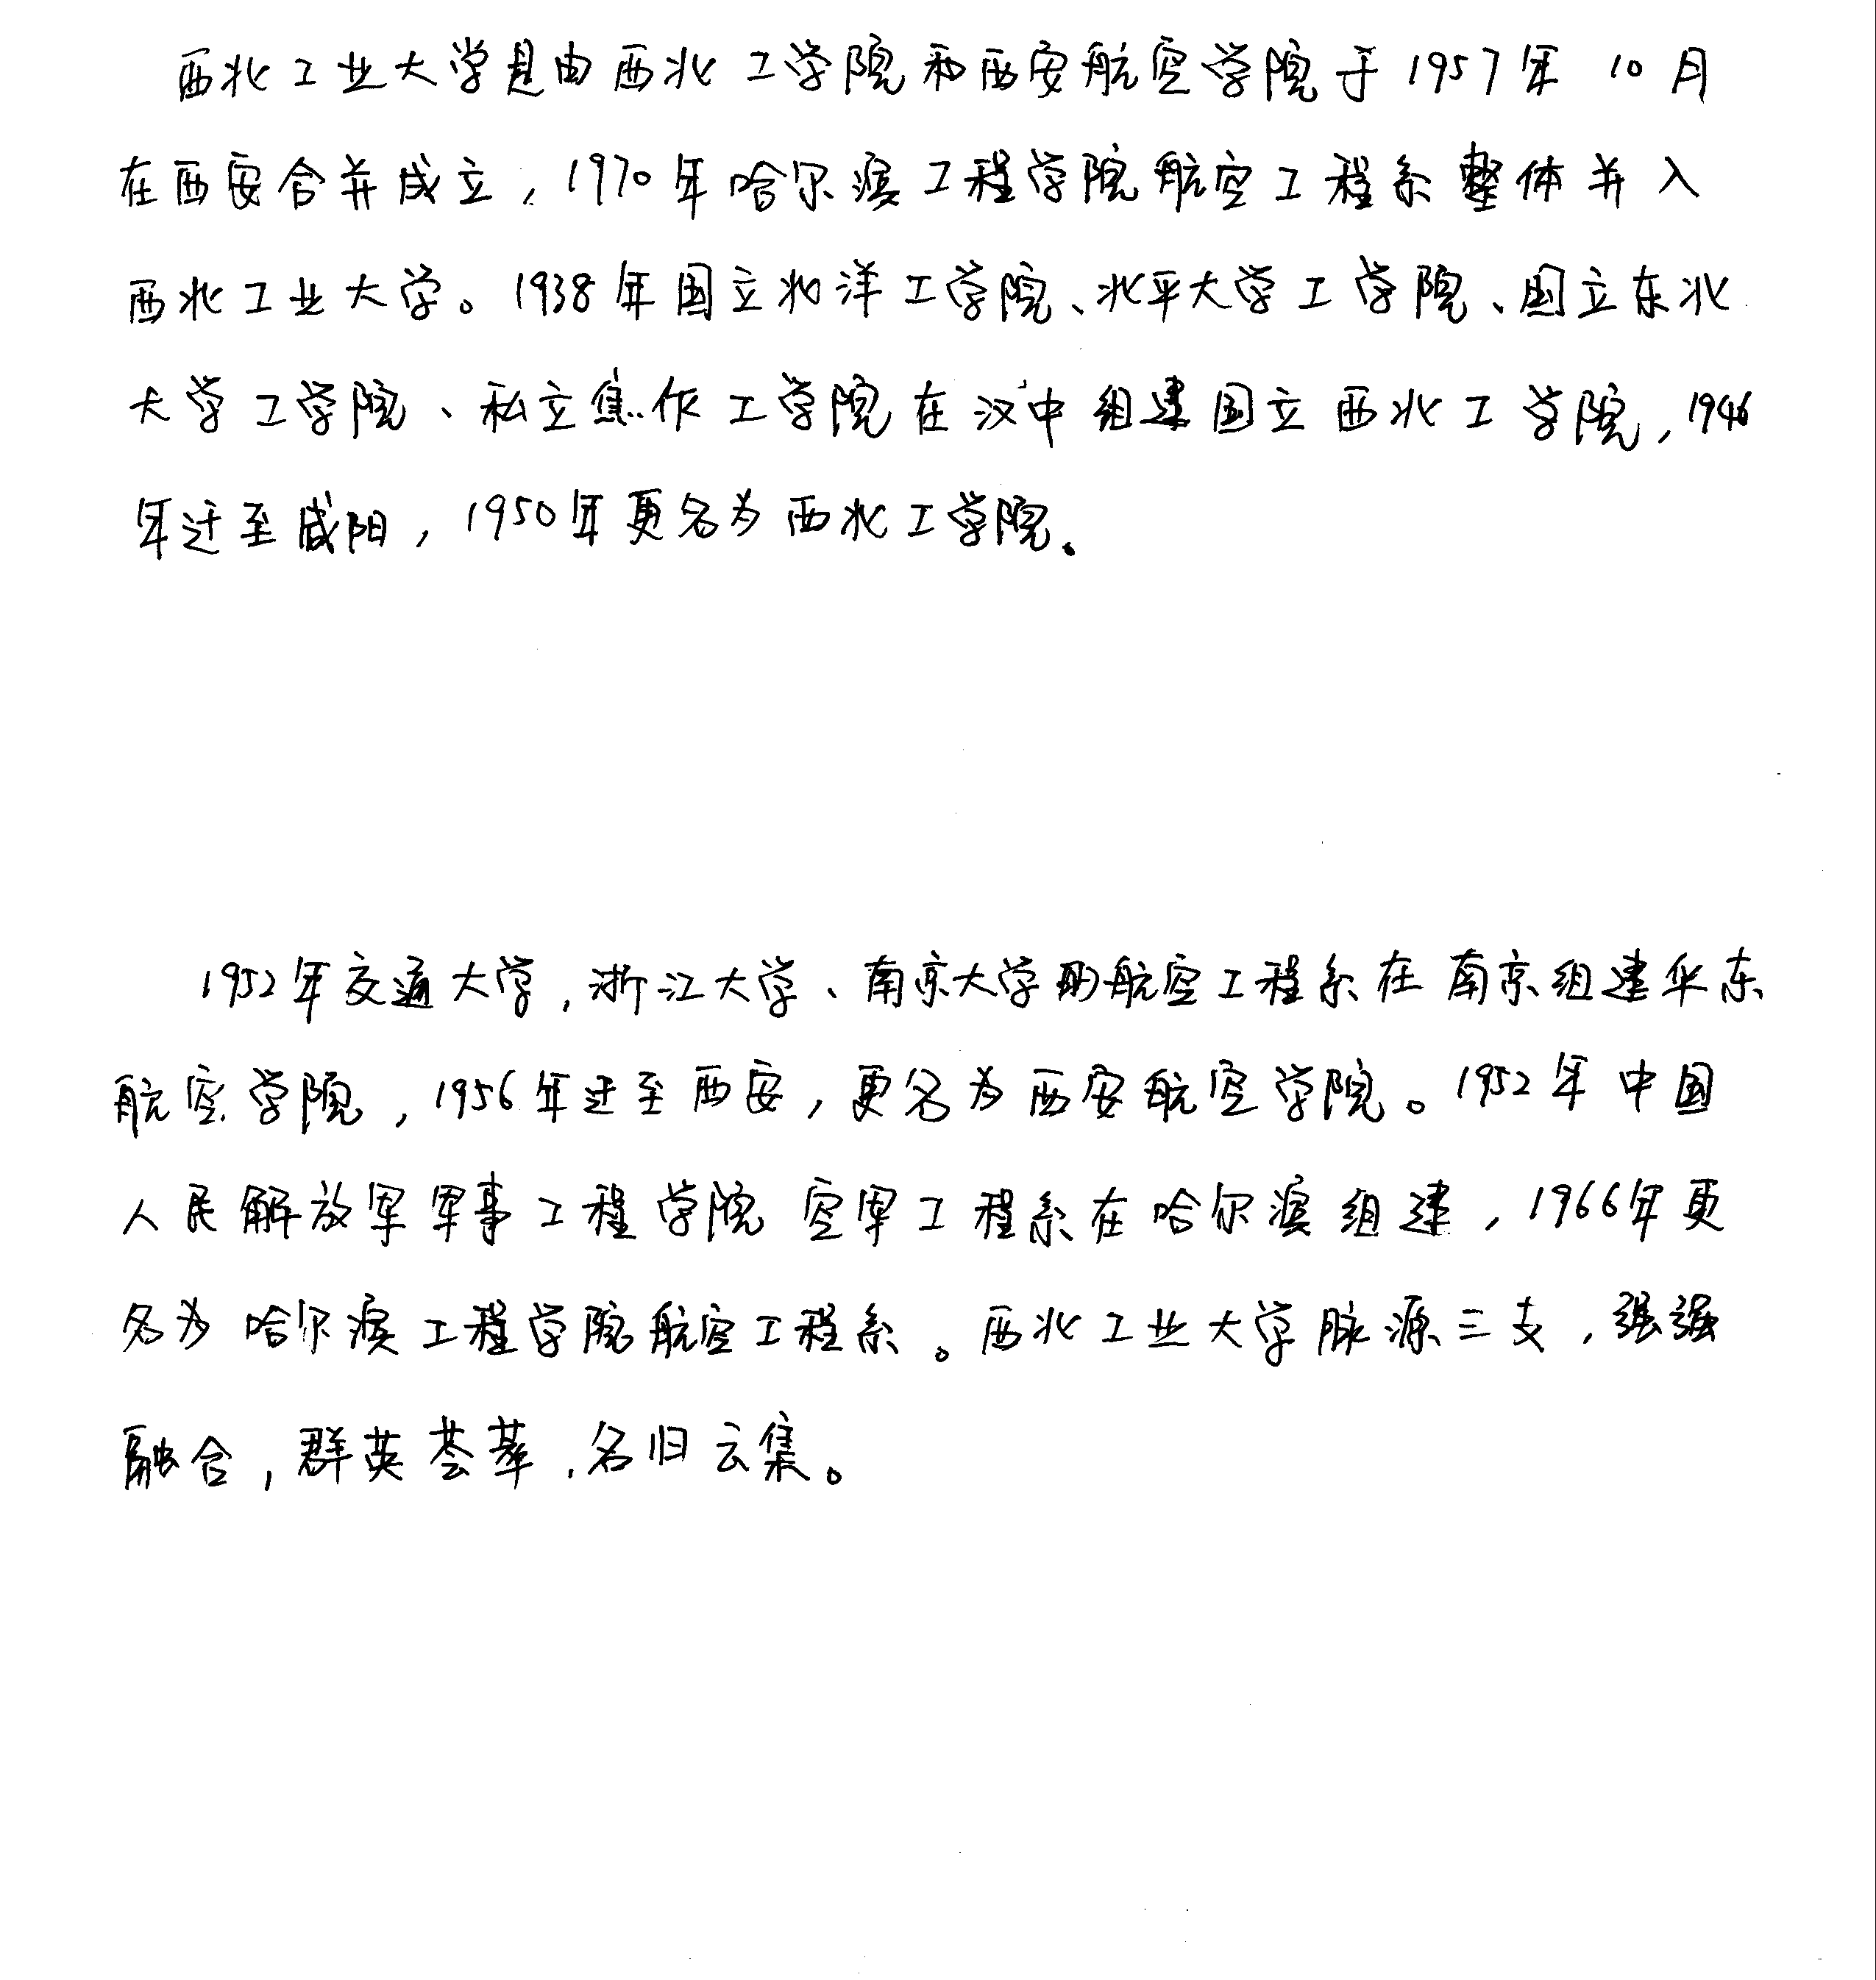 西北工业大学是由西北工学院和西安航空学院于1957年10月
在西安合并成立，1970年哈尔滨工程学院航空工程系整体并入
西北工业大学。1938年国立北洋工学院、北平大学工学院、国立东北
大学工学院、私立焦作工学院在汉中组建国立西北工学院，1946
年迁至咸阳，1950年更名为西北工学院。
1952年交通大学，浙江大学、南京大学的航空工程系在南京组建华东
航空学院，1956年迁至西安，更名为西安航空学院。1952年中国
人民解放军军事工程学院空军工程系在哈尔滨组建，1966年更
名为哈尔滨工程学院航空工程系。西北工业大学脉源三支，强强
融合，群英荟萃，名归云集。